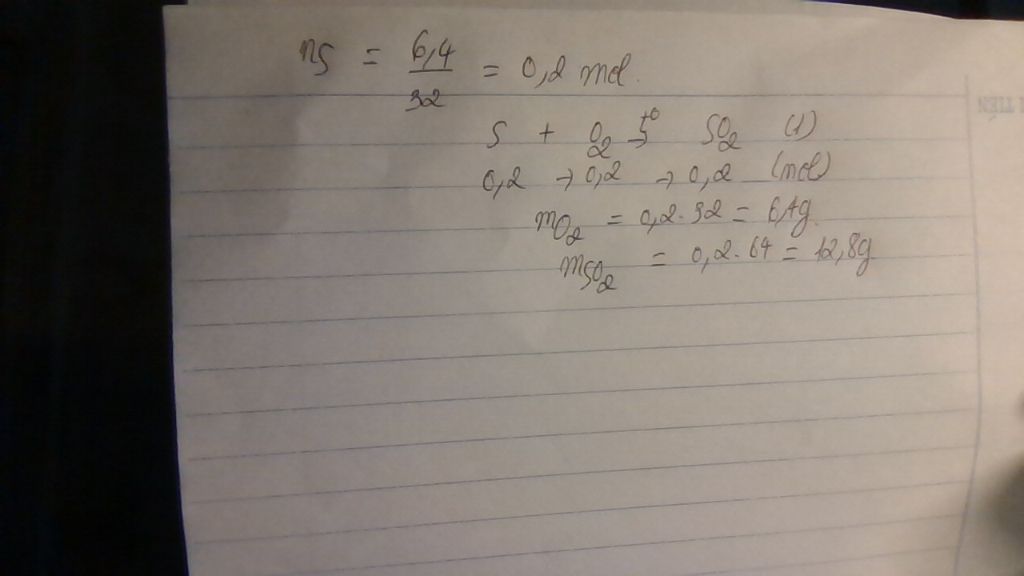 nS = 6,4/32 = 0,2 mol.
S + O2 →t° SO2 (1)
0,2 → 0,2 → 0,2 (mol)
mO2 = 0,2.32 = 6,4g.
mSO2 = 0,2.64 = 12,8g
TIẾN